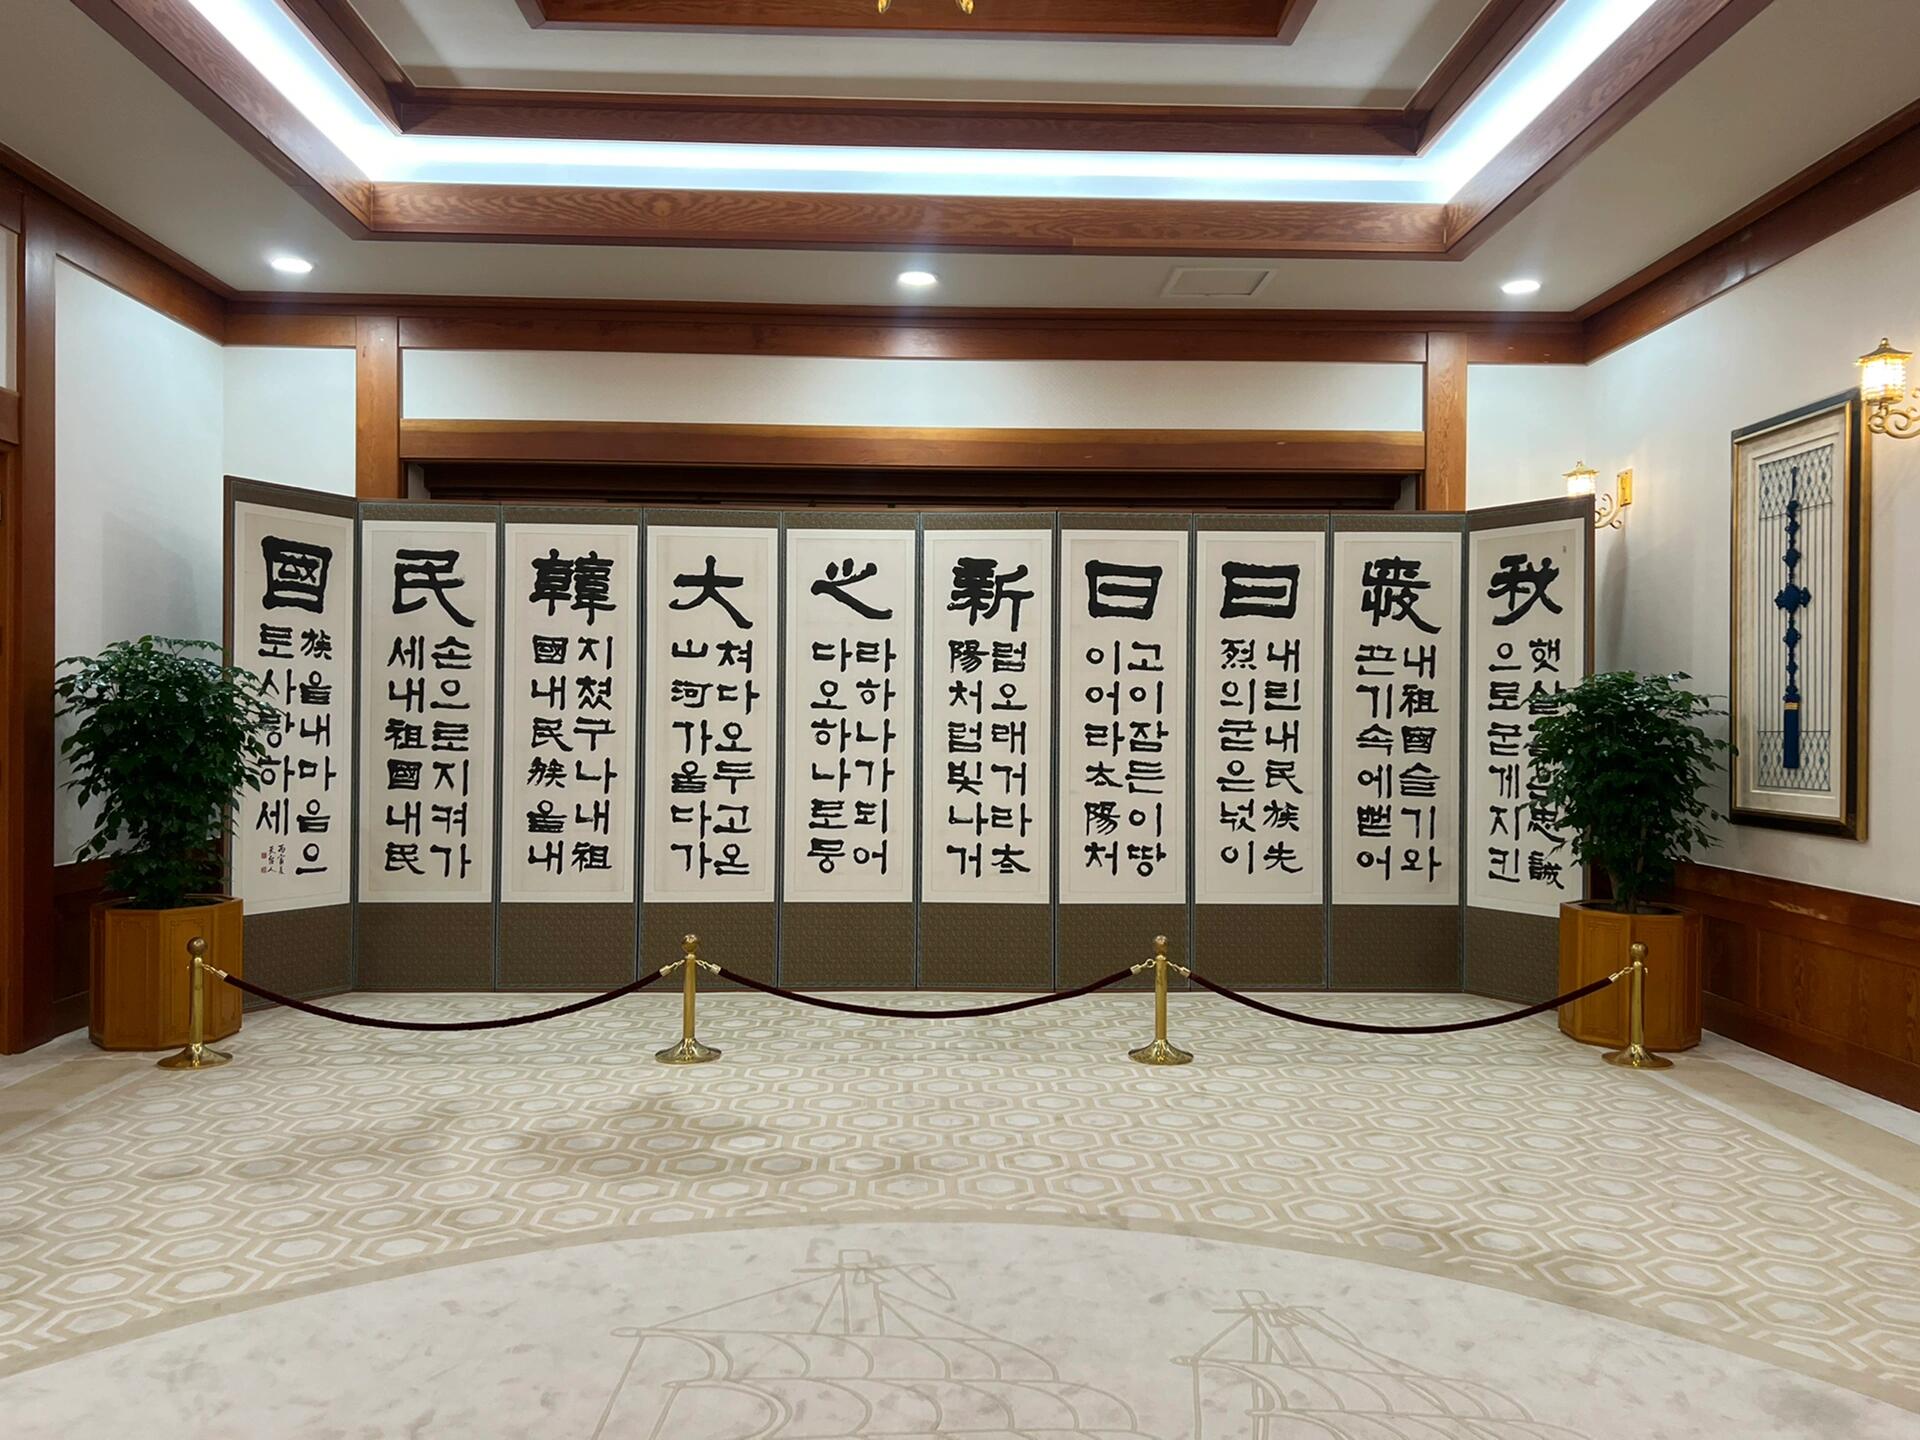 我
햇살같은忠誠
으로굳게지킨
내祖國슬기와
끈기속에뻗어
日
내린내民族先
烈의굳은넋이
日
고이잠든이땅
이어라太陽처
新
럼오래거라太
陽처럼빛나거
之
라하나가되어
다오하나로뭉
大
쳐다오두고온
山河가울다가
韓
지쳤구나내祖
國내民族을내
民
손으로지켜가
세내祖國내民
國
族을내마음으
로사랑하세
丙寅夏